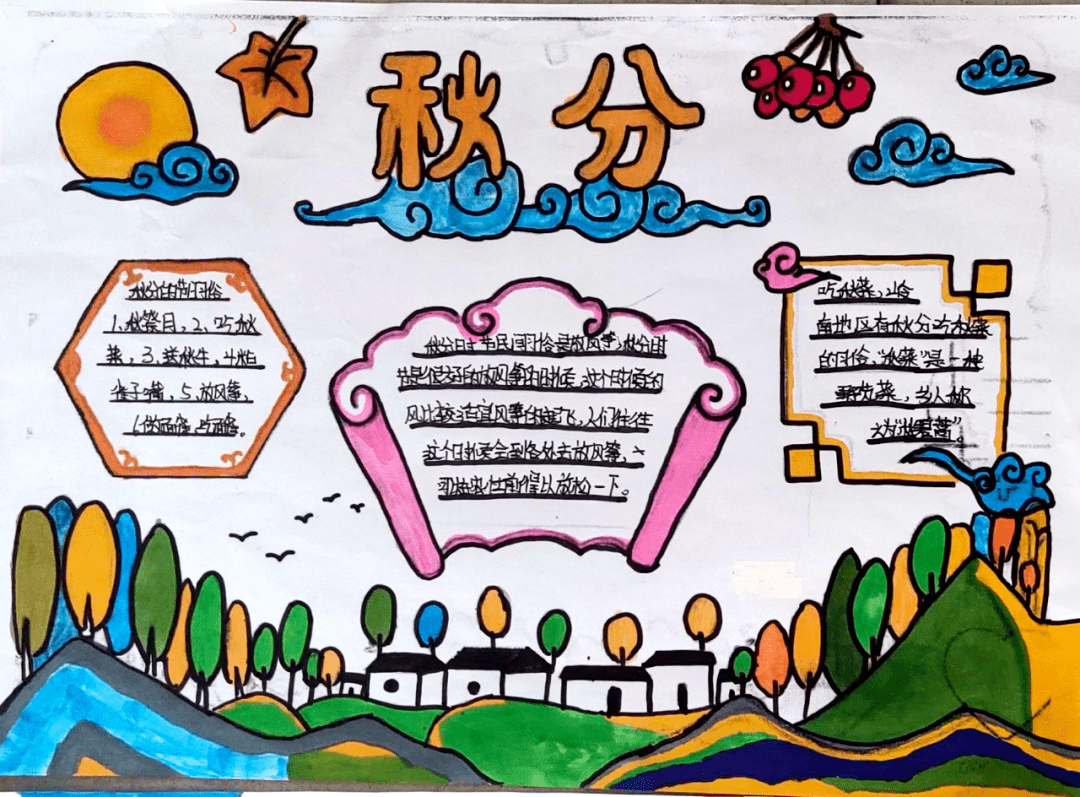 秋分
秋分的节日习俗
1、秋祭月、2、吃秋
菜，3、送秋牛，4、粘
雀子嘴，5、放风筝，
秋分时节民间习俗是放风筝，秋分时
节是很好的放风筝的时候，这个时候的
风比较适宜风筝的起飞，人们往往
这个时候会到各处去放风筝，
得以放松一下。
吃秋菜，岭
南地区有秋分吃秋菜
的习俗，“秋菜”是一种
野苋菜，乡人称
之为“秋碧蒿”。